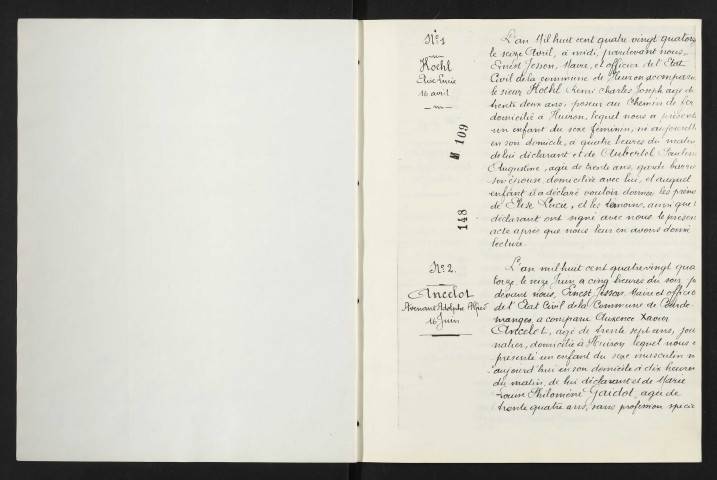 Nº 1
Hoehl
Elise Lucie
16 avril
L'an Mil huit cent quatre vingt quatorz
le seize Avril, à midi, pardevant nous
Ernest Jesson, Maire, et officier de l'Etat
Civil de la commune de Huiron, a comparu
le sieur Hoehl Remi Charles Joseph agé de
trente deux ans, poseur au Chemin de fer
domicilié à Huiron, lequel nous a présenté
un enfant du sexe féminin, né aujourd'h
en son domicile, à quatre heures du matin
de lui déclarant et de Aubertel
Augustine, agée de trente ans, garde barrièr
son épouse, domiciliée avec lui, et auquel
enfant il a déclaré vouloir donner les préno
de Elise Lucie, et les témoins, ainsi que l
déclarant ont signé avec nous le présent
acte après que nous leur en avons donné
lecture.
M 109
148
Nº 2.
Ancelot
Adolphe Alfred
16 Juin
L'an mil huit cent quatre vingt qua
torze, le seize Juin, à cinq heures du soir p
devant nous, Ernest Jesson, Maire et officie
de l'Etat Civil de la Commune de
manges, a comparu Auxence Xavier
Ancelot, agé de trente sept ans, jou
nalier, domicilié à Huiron lequel nous a
présenté un enfant du sexe masculin n
aujourd'hui en son domicile à dix heures
du matin, de lui déclarant et de Marie
Louise Philomène Gaidot, agée de
trente quatre ans, sans profession spécia